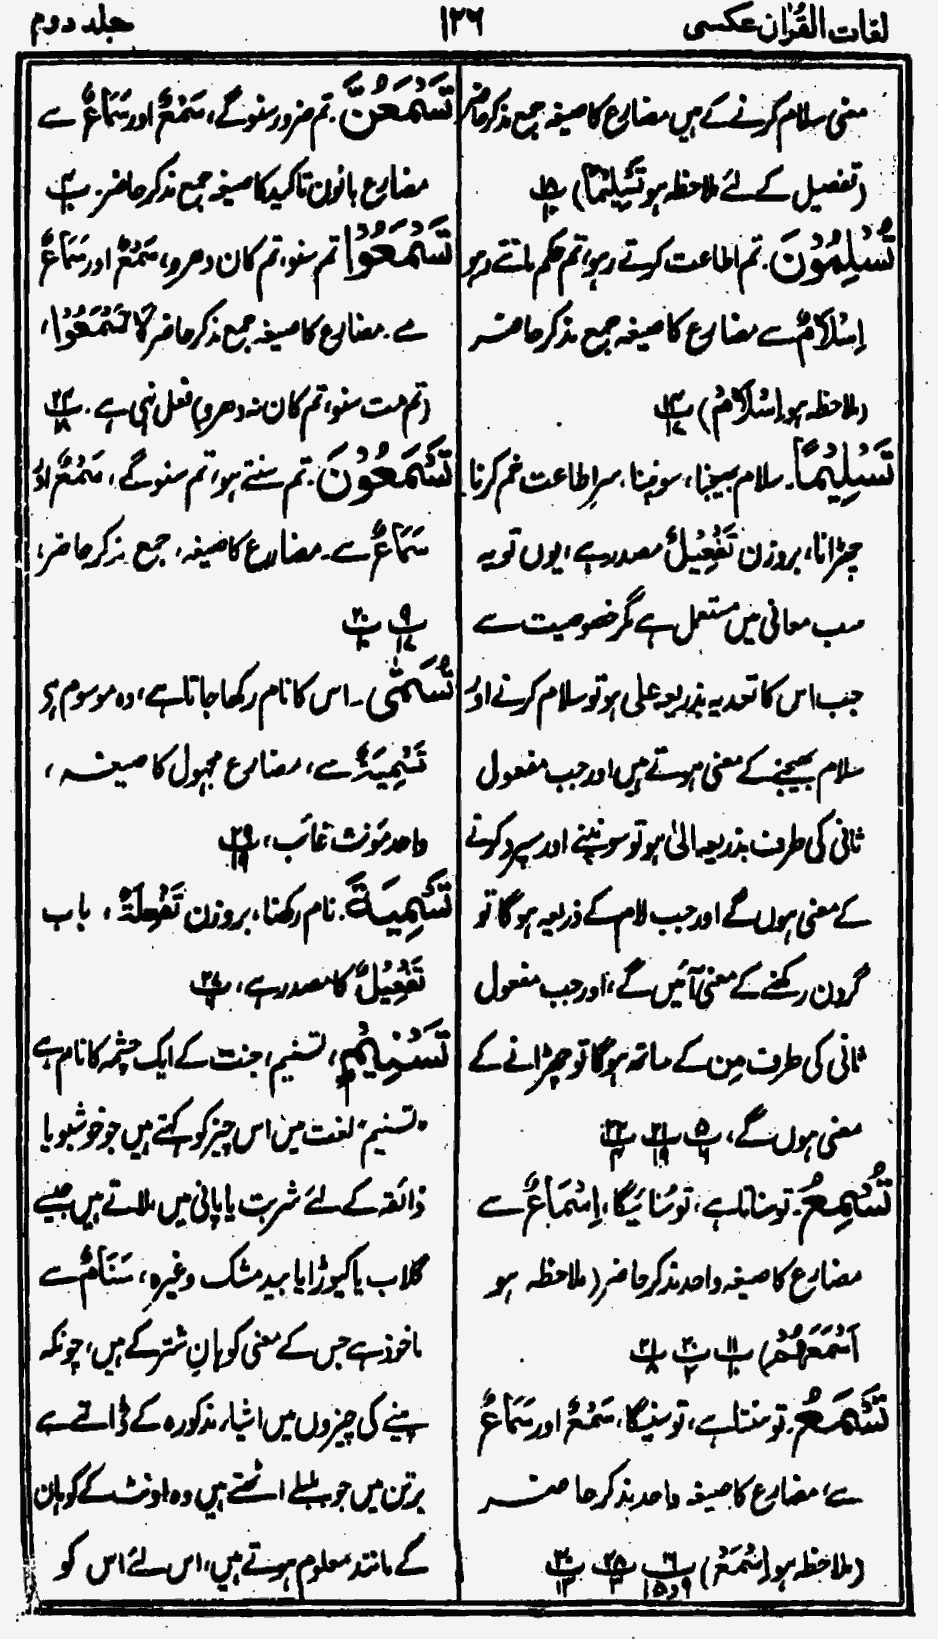 لغات القرآن عکسی
۱۲۶
جلد دوم
معنی سلام کرنے کے ہیں مضارع کا صیغہ جمع مذکر حاضر
(تفصیل کے لئے ملاحظہ ہو تَسْلِیْمًا) پ
تُسْلِمُوْنَ۔ تم اطاعت کرتے رہو، تم حکم مانتے رہو
اِسْلَامٌ سے مضارع کا صیغہ جمع مذکر حاضر
(ملاحظہ ہو اِسْلَامٌ) پ
تَسْلِیْمًا۔ سلام بھیجنا، سونپنا، سرِ اطاعت خم کرنا
چھڑانا، بروزن تَفْعِیْلٌ مصدر ہے، یوں تو یہ
سب معانی میں مستعمل ہے مگر خصوصیت سے
جب اس کا تعدیہ بذریعہ علی ہو تو سلام کرنے اور
سلام بھیجنے کے معنی ہوتے ہیں اور جب مفعول
ثانی کی طرف بذریعہ الیٰ ہو تو سونپنے اور سپرد کرنے
کے معنی ہوں گے اور جب لام کے ذریعہ ہوگا تو
گردن رکھنے کے معنی آئیں گے، اور جب مفعول
ثانی کی طرف مِن کے ساتھ ہوگا تو چھڑانے کے
معنی ہوں گے، پ ۵/۶ پ ۲۱/۱۹ پ ۲۲/۴
تُسْمِعُ۔ تو سناتا ہے، تو سُنائیگا، اِسْمَاعٌ سے
مضارع کا صیغہ واحد مذکر حاضر (ملاحظہ ہو
اَسْمَعَهُمْ) پ ۱۱/۱۰ پ ۲۰/۲ پ ۲۱/۸
تَسْمَعُ۔ تو سنتا ہے، تو سنیگا، سَمْعٌ اور سَمَاعٌ
سے، مضارع کا صیغہ واحد مذکر حاضر
(ملاحظہ ہو اِسْمَعْ) پ ۱۶/۹و۱۵ پ ۲۸/۱۳ پ ۳۰/۱۳
تَسْمَعُنَّ۔ تم ضرور سنو گے، سَمْعٌ اور سَمَاعٌ سے
مضارع بانون تاکید کا صیغہ جمع مذکر حاضر۔ پ ۴/۱۰
تَسْمَعُوْا تم سنو، تم کان دھرو، سَمْعٌ اور سَمَاعٌ
سے۔ مضارع کا صیغہ جمع مذکر حاضر لَا تَسْمَعُوْا،
(تم مت سنو، تم کان نہ دھرو) فعل نہی ہے۔ پ ۲۴/۱۸
تَسْمَعُوْنَ۔ تم سنتے ہو، تم سنو گے، سَمْعٌ اور
سَمَاعٌ سے۔ مضارع کا صیغہ، جمع مذکر حاضر،
پ ۹/۱۷ پ ۲۰/۱۰
تُسَمّٰی۔ اس کا نام رکھا جاتا ہے، وہ موسوم ہو
تَسْمِیَۃٌ سے، مضارع مجہول کا صیغہ،
واحد مؤنث غائب، پ ۲۹/۱۹
تَسْمِیَۃَ۔ نام رکھنا، بروزن تَفْعِلَۃٌ، باب
تَفْعِیْلٌ کا مصدر ہے، پ ۲۷/۶
تَسْنِیْمٍ، تسنیم، جنت کے ایک چشمہ کا نام ہے
"تسنیم" لغت میں اس چیز کو کہتے ہیں جو خوشبو یا
ذائقہ کے لئے شربت یا پانی میں ملاتے ہیں جیسے
گلاب یا کیوڑا یا بیدِ مشک وغیرہ، سَنَامٌ سے
ماخوذ ہے جس کے معنی کوہانِ شتر کے ہیں، چونکہ
پینے کی چیزوں میں اشیاء مذکورہ کے ڈالنے سے
برتن میں جو بلبلے اٹھتے ہیں وہ اونٹ کے کوہان
کے مانند معلوم ہوتے ہیں، اس لئے اس کو